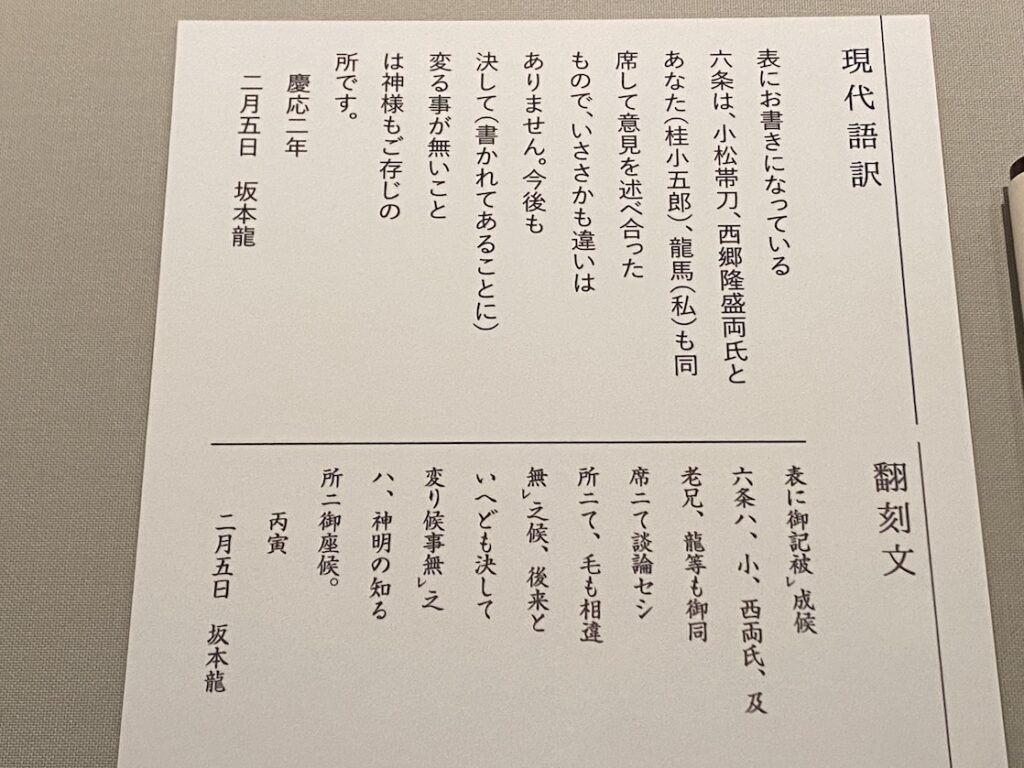 現代語訳
表にお書きになっている
六条は、小松帯刀、西郷隆盛両氏と
あなた（桂小五郎）、龍馬（私）も同
席して意見を述べ合った
もので、いささかも違いは
ありません。今後も
決して（書かれてあることに）
変る事が無いこと
は神様もご存じの
所です。
慶応二年
二月五日　坂本龍
翻刻文
表に御記被㆑成候
六条ハ、小、西両氏、及
老兄、龍等も御同
席ニて談論セシ
所ニて、毛も相違
無㆑之候、後来と
いへども決して
変り候事無㆑之
ハ、神明の知る
所ニ御座候。
丙寅
二月五日　坂本龍